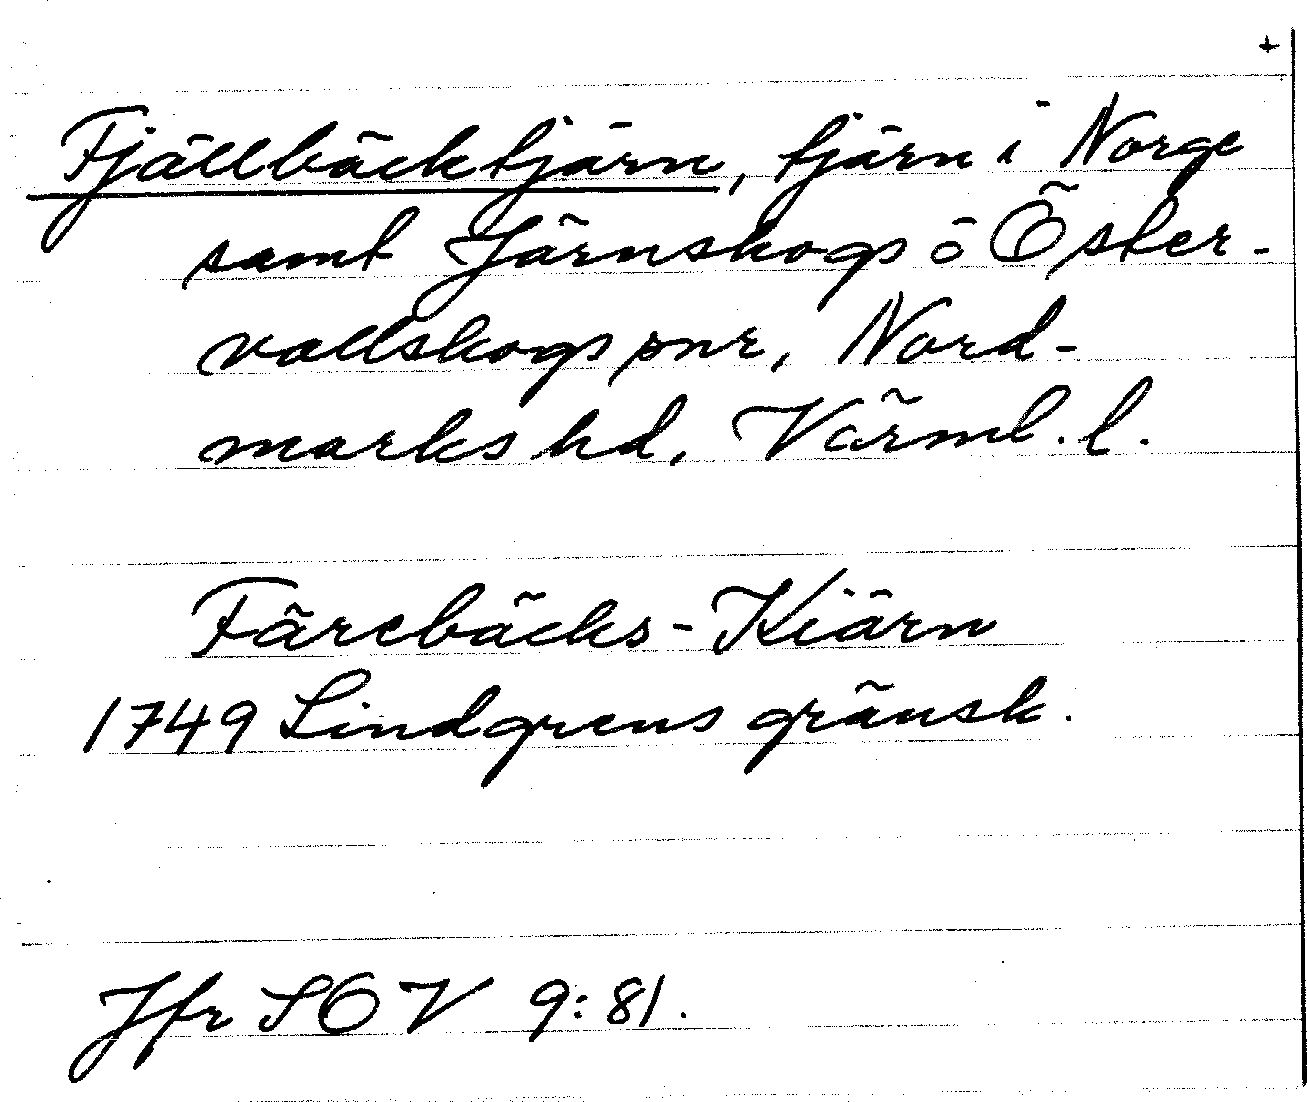 +
Fjällbäcktjärn, tjärn i Norge
samt Järnskogs o Öster-
vallskogs snr, Nord-
marks hd, Värml. l.
Färebäcks-Kiärn
1749 Lindgrens gränsk.
Jfr SOV 9:81.